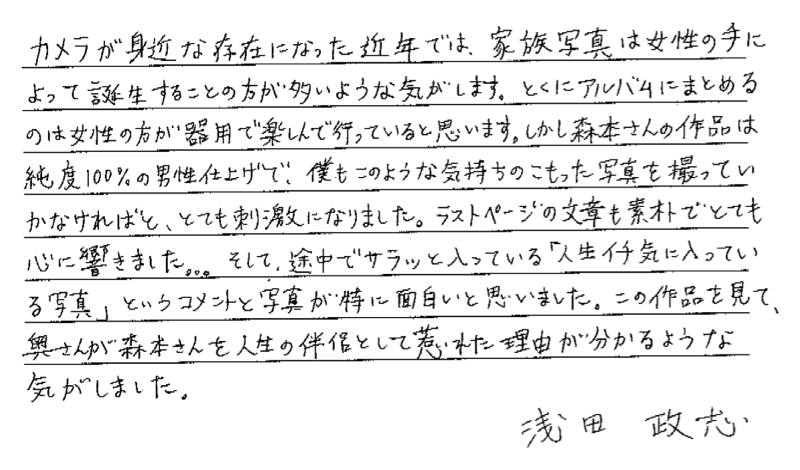 カメラが身近な存在になった近年では、家族写真は女性の手に
よって誕生することの方が多いような気がします。とくにアルバムにまとめる
のは女性の方が器用で楽しんで行っていると思います。しかし森本さんの作品は
純度100%の男性仕上げで、僕もこのような気持ちのこもった写真を撮ってい
かなければと、とても刺激になりました。ラストページの文章も素朴でとても
心に響きました。。。そして、途中でサラッと入っている「人生イチ気に入ってい
る写真」というコメントと写真が特に面白いと思いました。この作品を見て、
奥さんが森本さんを人生の伴侶として惹かれた理由が分かるような
気がしました。
浅田 政志